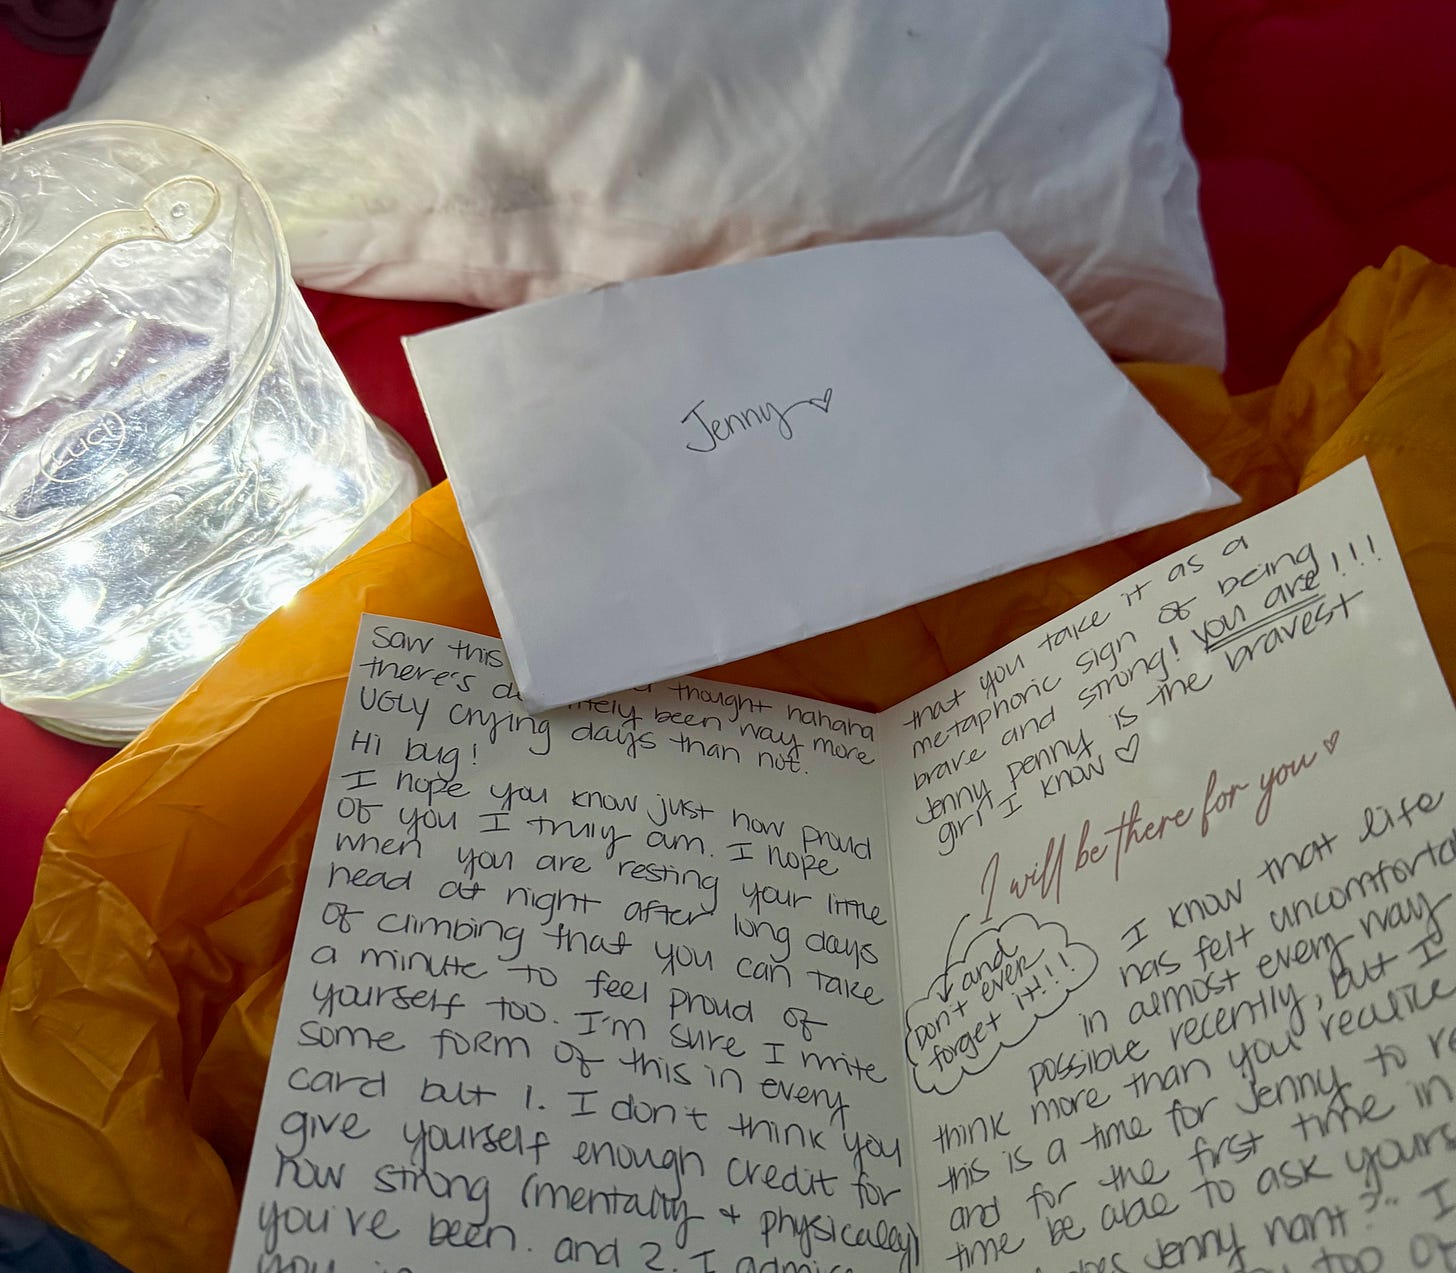 LUCI
Jenny
saw this thought hahaha
there's been way more
UGLY crying days than not.
Hi bug!
I hope you know just how proud
of you I truly am. I hope
when you are resting your little
head at night after long days
of climbing that you can take
a minute to feel proud of
yourself too. I'm sure I write
some form of this in every
card but 1. I don't think you
give yourself enough credit for
how strong (mentally + physically)
you've been. and 2. I
that you take it as a
metaphoric sign of being
brave and strong! you are!!!
Jenny penny is the bravest
girl I know ♡
I will be there for you ♡
(and
don't ever
forget it!!!)
I know that life
has felt
in almost every way
possible recently, but I
think more than you realize
this is a time for Jenny to
and for the first time in
time be able to ask
Jenny want?" I
too